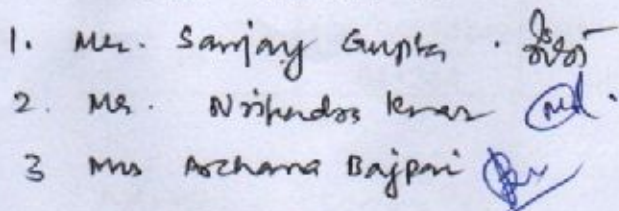 1. Mr. Sanjay Gupta.
2. Mr. Nripendra Kumar
3 Mrs Archana Bajpai